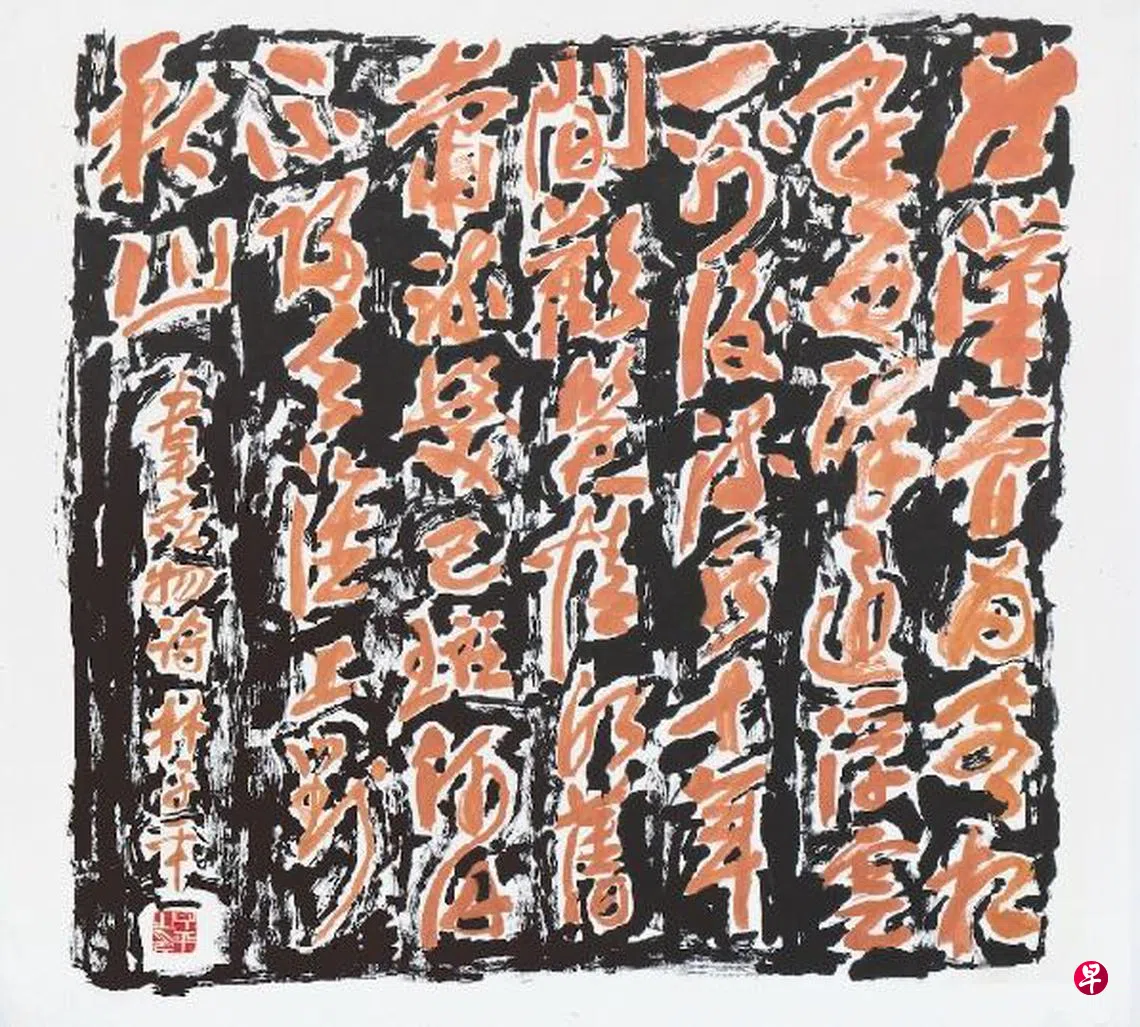 江漢曾為客相
逢每醉還浮雲
一別後流水十年
間歡笑情如舊
蕭疏鬢已斑何因
不歸去淮上對
秋山 韋應物詩 林子平
早